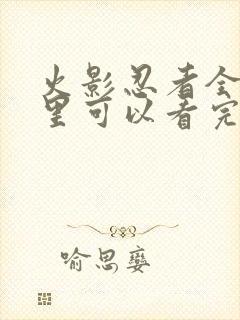 火影忍者全
里可以看完
喻思娈